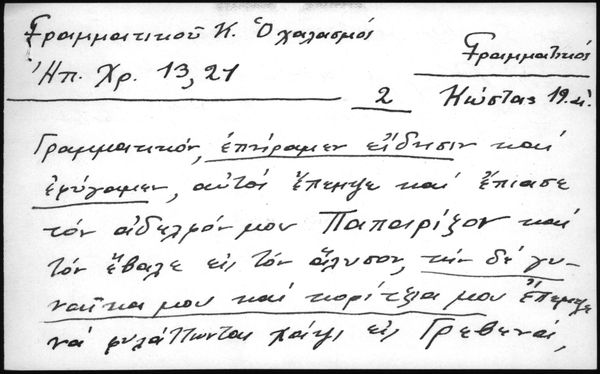 Γραμματικοῦ Κ. Ὁ χαλασμός
Ἠπ. Χρ. 13, 21
Γραμματικός
2
Κώστας 19.
Γραμματικόν, ἐπήραμεν εἴδησιν καί
ἐφύγαμεν, αὐτοί ἔπεμψε καί ἔπιασε
τόν ἀδελφόν μου Παπαιρίζον καί
τόν ἔβαλε εἰς τόν ἅλυσον, τήν δέ γυ-
ναῖκα μου καί κορίτζια μου ἔπεμψε
νά φυλάττωνται χάψι εἰς Γρεβενά,